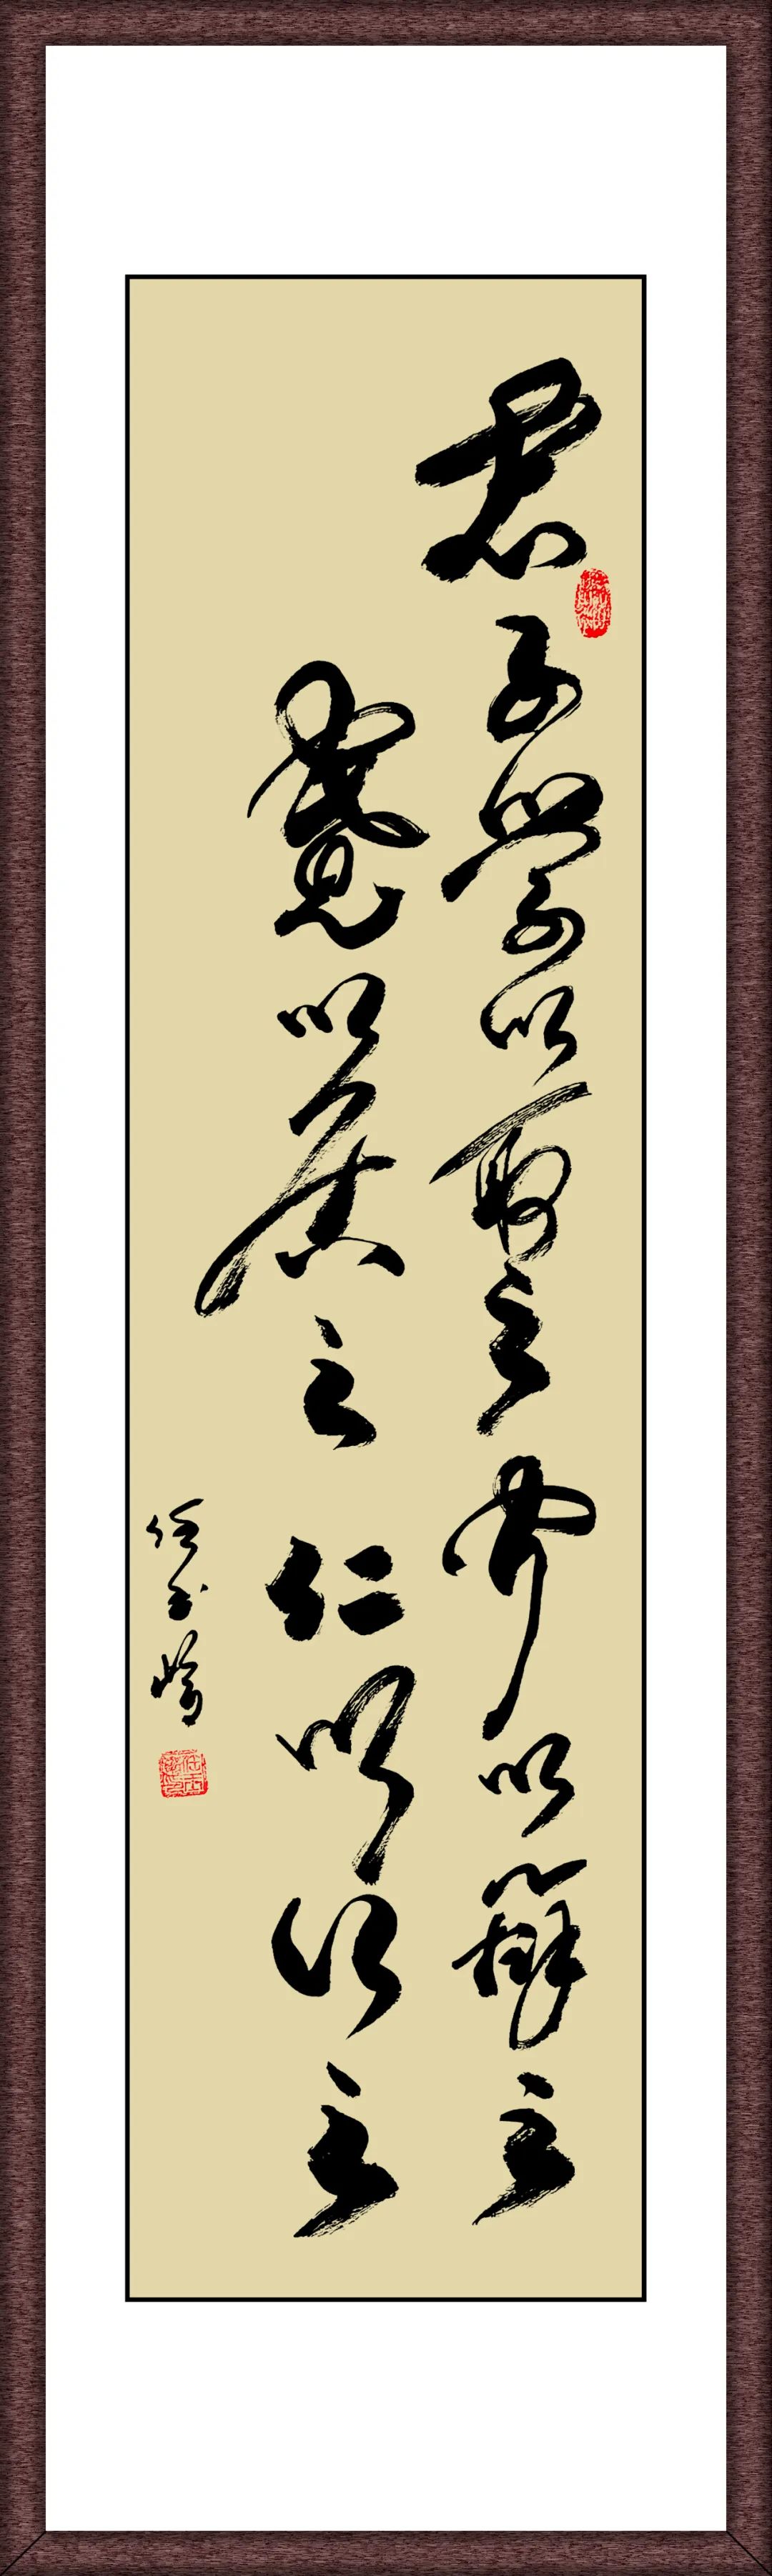 君子學以聚之問以辯之
寬以居之仁以行之
任玉岭